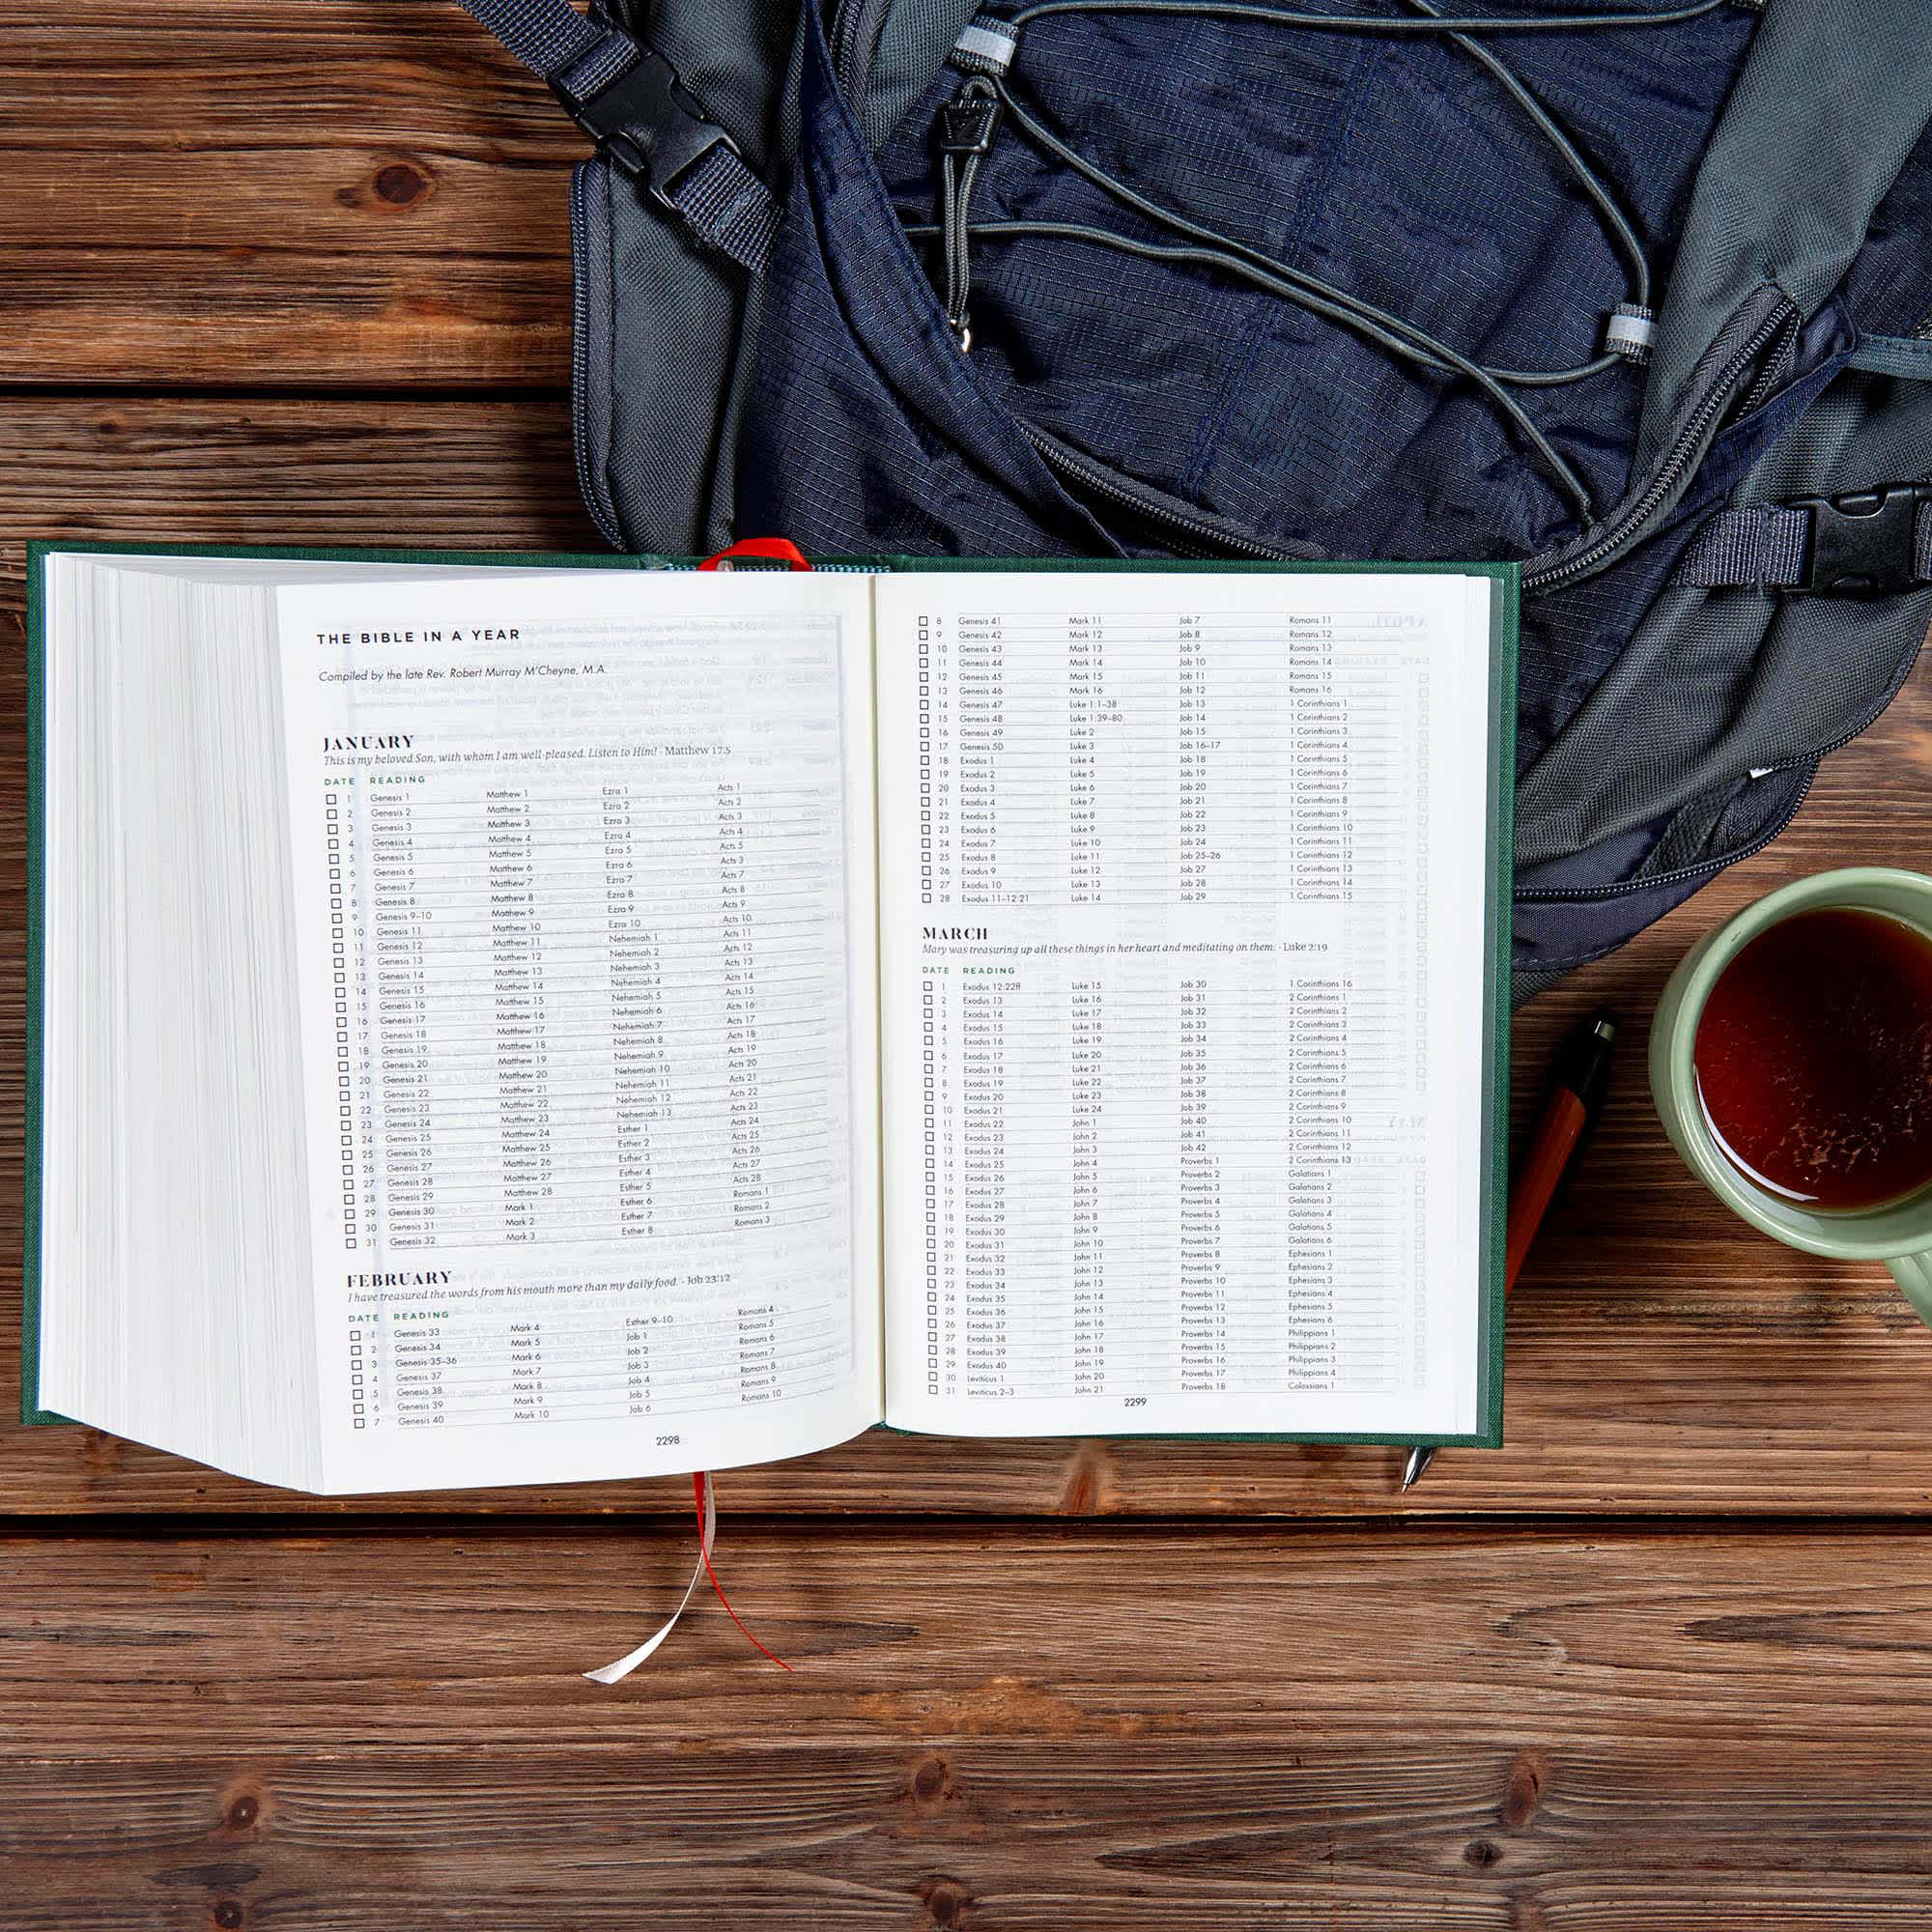 THE BIBLE IN A YEAR
Compiled by the late Rev. Robert Murray M'Cheyne, M.A.
JANUARY
This is my beloved Son, with whom I am well-pleased. Listen to Him! - Matthew 17:5
DATE READING
1 Genesis 1 Matthew 1 Ezra 1 Acts 1
2 Genesis 2 Matthew 2 Ezra 2 Acts 2
3 Genesis 3 Matthew 3 Ezra 3 Acts 3
4 Genesis 4 Matthew 4 Ezra 4 Acts 4
5 Genesis 5 Matthew 5 Ezra 5 Acts 5
6 Genesis 6 Matthew 6 Ezra 6 Acts 3
7 Genesis 7 Matthew 7 Ezra 7 Acts 7
8 Genesis 8 Matthew 8 Ezra 8 Acts 8
9 Genesis 9–10 Matthew 9 Ezra 9 Acts 9
10 Genesis 11 Matthew 10 Ezra 10 Acts 10
11 Genesis 12 Matthew 11 Nehemiah 1 Acts 11
12 Genesis 13 Matthew 12 Nehemiah 2 Acts 12
13 Genesis 14 Matthew 13 Nehemiah 3 Acts 13
14 Genesis 15 Matthew 14 Nehemiah 4 Acts 14
15 Genesis 16 Matthew 15 Nehemiah 5 Acts 15
16 Genesis 17 Matthew 16 Nehemiah 6 Acts 16
17 Genesis 18 Matthew 17 Nehemiah 7 Acts 17
18 Genesis 19 Matthew 18 Nehemiah 8 Acts 18
19 Genesis 20 Matthew 19 Nehemiah 9 Acts 19
20 Genesis 21 Matthew 20 Nehemiah 10 Acts 20
21 Genesis 22 Matthew 21 Nehemiah 11 Acts 21
22 Genesis 23 Matthew 22 Nehemiah 12 Acts 22
23 Genesis 24 Matthew 23 Nehemiah 13 Acts 23
24 Genesis 25 Matthew 24 Esther 1 Acts 24
25 Genesis 26 Matthew 25 Esther 2 Acts 25
26 Genesis 27 Matthew 26 Esther 3 Acts 26
27 Genesis 28 Matthew 27 Esther 4 Acts 27
28 Genesis 29 Matthew 28 Esther 5 Acts 28
29 Genesis 30 Mark 1 Esther 6 Romans 1
30 Genesis 31 Mark 2 Esther 7 Romans 2
31 Genesis 32 Mark 3 Esther 8 Romans 3
FEBRUARY
I have treasured the words from his mouth more than my daily food. - Job 23:12
DATE READING
1 Genesis 33 Mark 4 Esther 9–10 Romans 4
2 Genesis 34 Mark 5 Job 1 Romans 5
3 Genesis 35–36 Mark 6 Job 2 Romans 6
4 Genesis 37 Mark 7 Job 3 Romans 7
5 Genesis 38 Mark 8 Job 4 Romans 8
6 Genesis 39 Mark 9 Job 5 Romans 9
7 Genesis 40 Mark 10 Job 6 Romans 10
2298
8 Genesis 41 Mark 11 Job 7 Romans 11
9 Genesis 42 Mark 12 Job 8 Romans 12
10 Genesis 43 Mark 13 Job 9 Romans 13
11 Genesis 44 Mark 14 Job 10 Romans 14
12 Genesis 45 Mark 15 Job 11 Romans 15
13 Genesis 46 Mark 16 Job 12 Romans 16
14 Genesis 47 Luke 1:1–38 Job 13 1 Corinthians 1
15 Genesis 48 Luke 1:39–80 Job 14 1 Corinthians 2
16 Genesis 49 Luke 2 Job 15 1 Corinthians 3
17 Genesis 50 Luke 3 Job 16–17 1 Corinthians 4
18 Exodus 1 Luke 4 Job 18 1 Corinthians 5
19 Exodus 2 Luke 5 Job 19 1 Corinthians 6
20 Exodus 3 Luke 6 Job 20 1 Corinthians 7
21 Exodus 4 Luke 7 Job 21 1 Corinthians 8
22 Exodus 5 Luke 8 Job 22 1 Corinthians 9
23 Exodus 6 Luke 9 Job 23 1 Corinthians 10
24 Exodus 7 Luke 10 Job 24 1 Corinthians 11
25 Exodus 8 Luke 11 Job 25–26 1 Corinthians 12
26 Exodus 9 Luke 12 Job 27 1 Corinthians 13
27 Exodus 10 Luke 13 Job 28 1 Corinthians 14
28 Exodus 11–12:21 Luke 14 Job 29 1 Corinthians 15
MARCH
Mary was treasuring up all these things in her heart and meditating on them. - Luke 2:19
DATE READING
1 Exodus 12:22ff Luke 15 Job 30 1 Corinthians 16
2 Exodus 13 Luke 16 Job 31 2 Corinthians 1
3 Exodus 14 Luke 17 Job 32 2 Corinthians 2
4 Exodus 15 Luke 18 Job 33 2 Corinthians 3
5 Exodus 16 Luke 19 Job 34 2 Corinthians 4
6 Exodus 17 Luke 20 Job 35 2 Corinthians 5
7 Exodus 18 Luke 21 Job 36 2 Corinthians 6
8 Exodus 19 Luke 22 Job 37 2 Corinthians 7
9 Exodus 20 Luke 23 Job 38 2 Corinthians 8
10 Exodus 21 Luke 24 Job 39 2 Corinthians 9
11 Exodus 22 John 1 Job 40 2 Corinthians 10
12 Exodus 23 John 2 Job 41 2 Corinthians 11
13 Exodus 24 John 3 Job 42 2 Corinthians 12
14 Exodus 25 John 4 Proverbs 1 2 Corinthians 13
15 Exodus 26 John 5 Proverbs 2 Galatians 1
16 Exodus 27 John 6 Proverbs 3 Galatians 2
17 Exodus 28 John 7 Proverbs 4 Galatians 3
18 Exodus 29 John 8 Proverbs 5 Galatians 4
19 Exodus 30 John 9 Proverbs 6 Galatians 5
20 Exodus 31 John 10 Proverbs 7 Galatians 6
21 Exodus 32 John 11 Proverbs 8 Ephesians 1
22 Exodus 33 John 12 Proverbs 9 Ephesians 2
23 Exodus 34 John 13 Proverbs 10 Ephesians 3
24 Exodus 35 John 14 Proverbs 11 Ephesians 4
25 Exodus 36 John 15 Proverbs 12 Ephesians 5
26 Exodus 37 John 16 Proverbs 13 Ephesians 6
27 Exodus 38 John 17 Proverbs 14 Philippians 1
28 Exodus 39 John 18 Proverbs 15 Philippians 2
29 Exodus 40 John 19 Proverbs 16 Philippians 3
30 Leviticus 1 John 20 Proverbs 17 Philippians 4
31 Leviticus 2–3 John 21 Proverbs 18 Colossians 1
2299